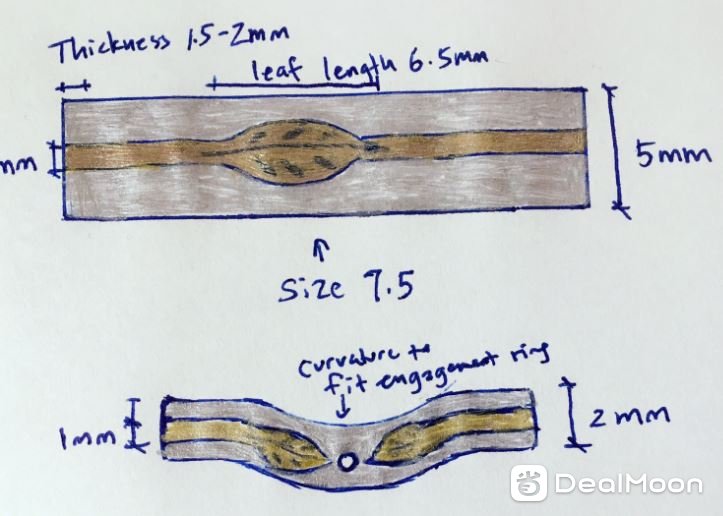 Thickness 1.5-2mm
leaf length 6.5mm
mm
5mm
↑
Size 7.5
curvature to
fit engagement ring
↓
1mm
2mm
DealMoon